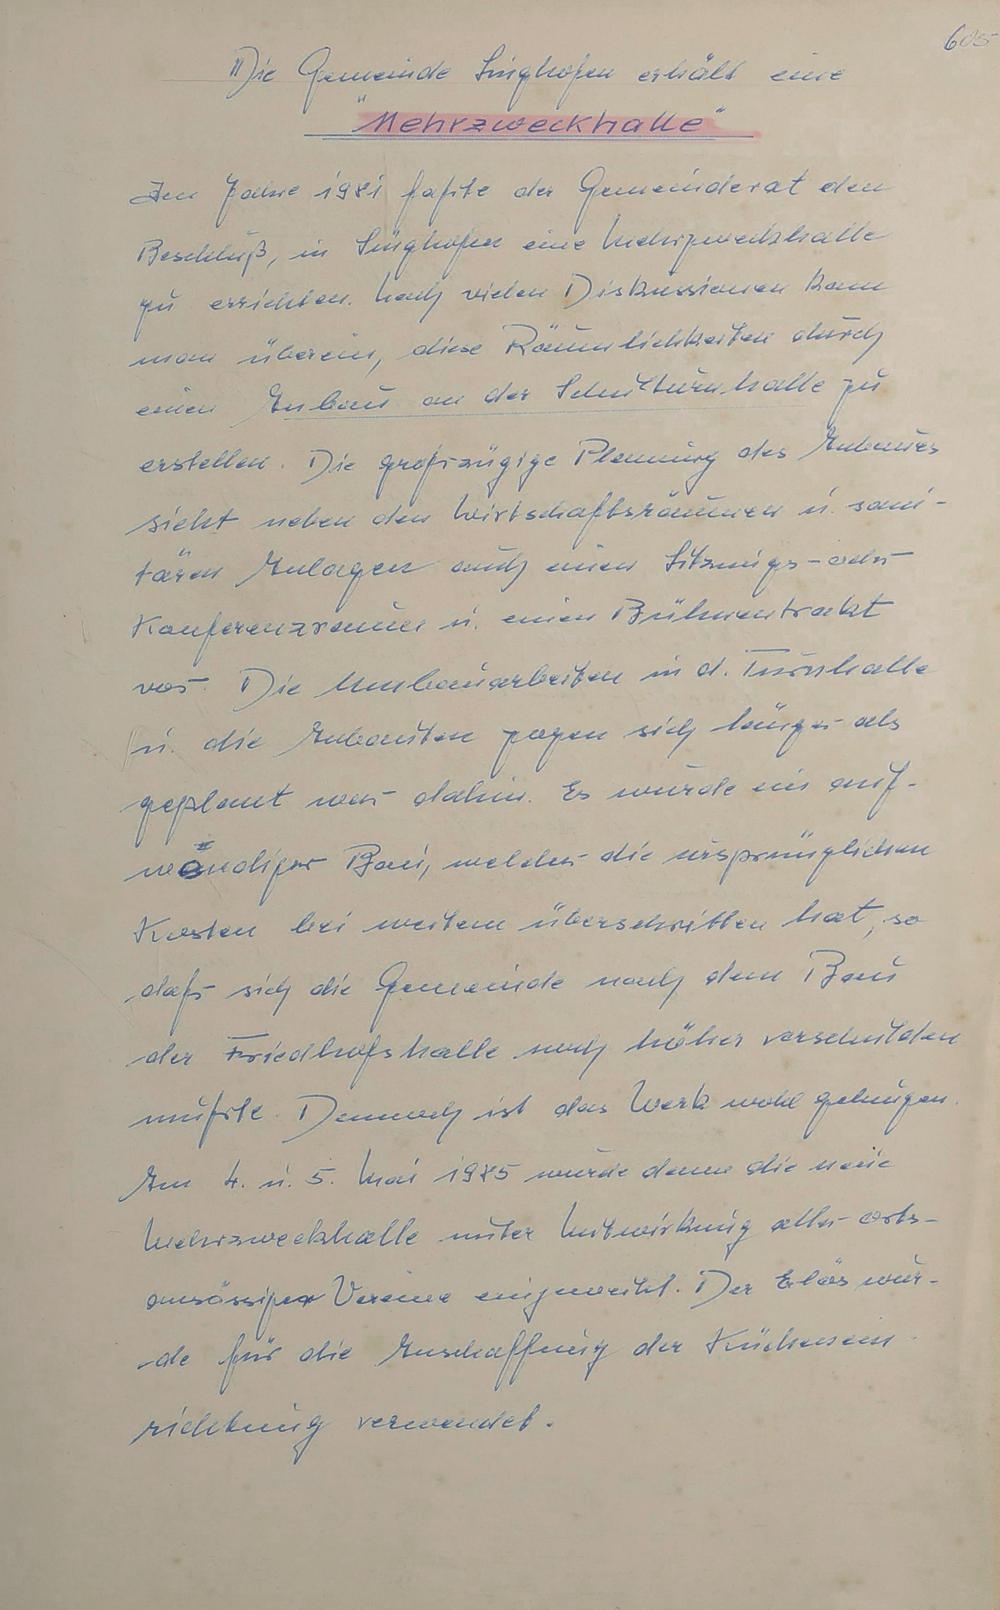 605
Die Gemeinde Singhofen erhält eine
"Mehrzweckhalle"
Im Jahre 1981 faßte der Gemeinderat den
Beschluß, in Singhofen eine Mehrzweckhalle
zu errichten. Nach vielen Diskussionen kam
man überein, diese Räumlichkeiten durch
einen Anbau an der Schulturnhalle zu
erstellen. Die großzügige Planung des Anbaues
sieht neben den Wirtschaftsräumen u. sani-
tären Anlagen auch einen Sitzungs- oder
Konferenzraum u. einen Bühnentrakt
vor. Die Umbauarbeiten in d. Turnhalle
u. die Anbauten zogen sich länger als
geplant war dahin. Es wurde ein auf-
wändiger Bau, welcher die ursprünglichen
Kosten bei weitem überschritten hat, so
daß sich die Gemeinde nach dem Bau
der Friedhofshalle noch höher verschulden
mußte. Dennoch ist das Werk wohl gelungen.
Am 4. u. 5. Mai 1985 wurde dann die neue
Mehrzweckhalle unter Mitwirkung aller orts-
ansässiger Vereine eingeweiht. Der Erlös wur-
de für die Anschaffung der Küchenein-
richtung verwendet.